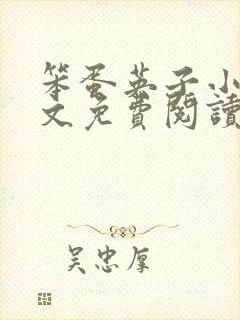 笨蛋英子小
文免費閱讀
吴忠厚